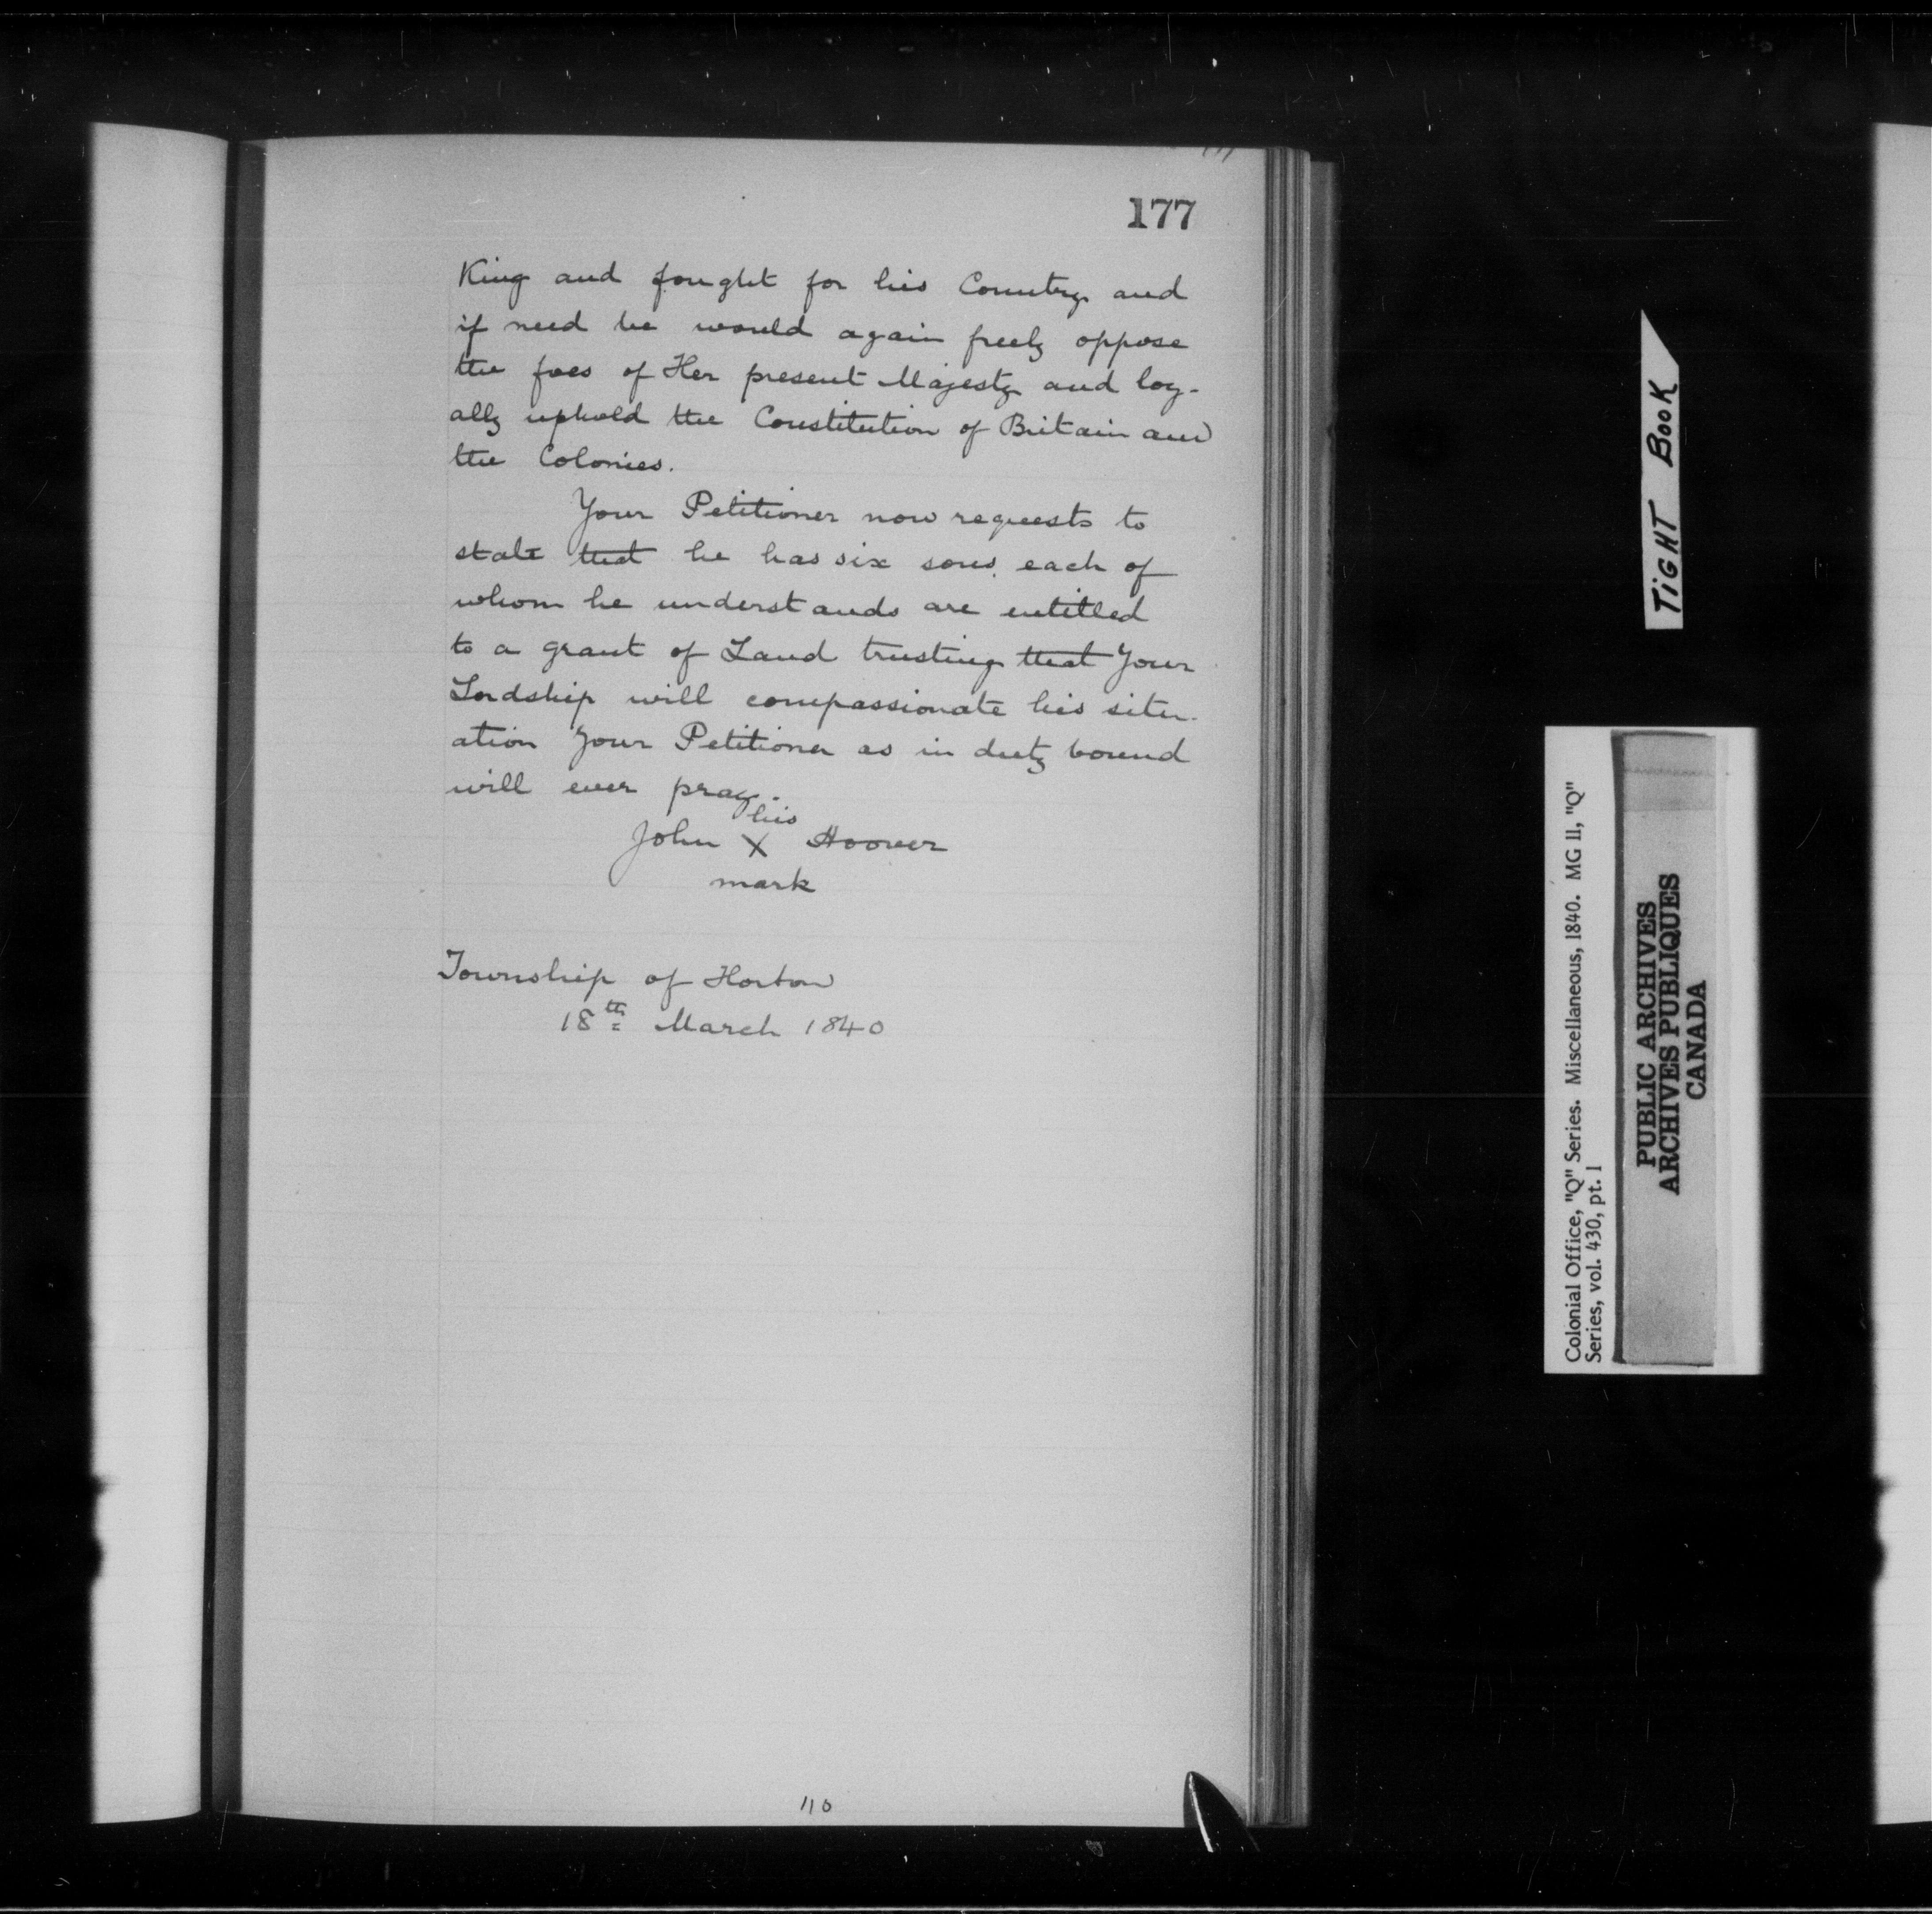 177
King and fought for his Country and
if need be would again freely oppose
the foes of Her present Majesty and loy-
ally uphold the Constitution of Britain and
the Colonies.
Your Petitioner now requests to
state that he has six sons each of
whom he understands are entitled
to a grant of Land trusting that Your
Lordship will compassionate his situ-
ation Your Petitioner as in duty bound
will ever pray.
his
John X Hoover
mark
Township of Horton
18th March 1840
110
TIGHT BOOK
Colonial Office, "Q" Series. Miscellaneous, 1840. MG 11, "Q"
Series, vol. 430, pt. 1
PUBLIC ARCHIVES
ARCHIVES PUBLIQUES
CANADA